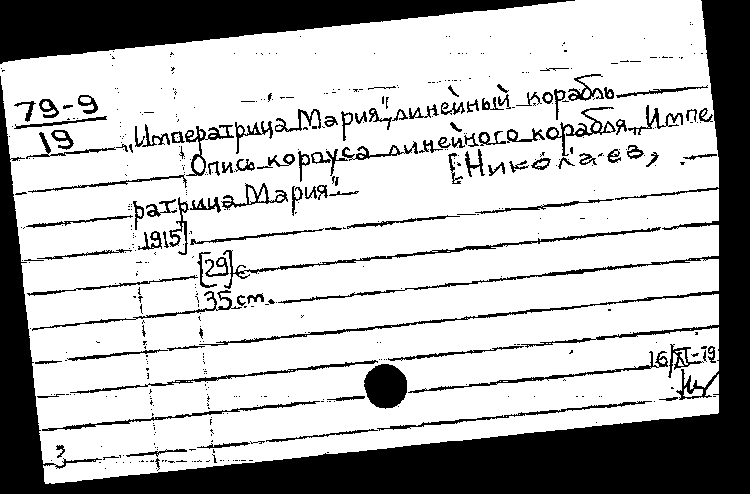 79-9
19
„Императрица Мария", линейный корабль
Опись корпуса линейного корабля „Импе
ратрица Мария" [Николаев,
1915].
[29] с
35 cm.
16/XI-79
3